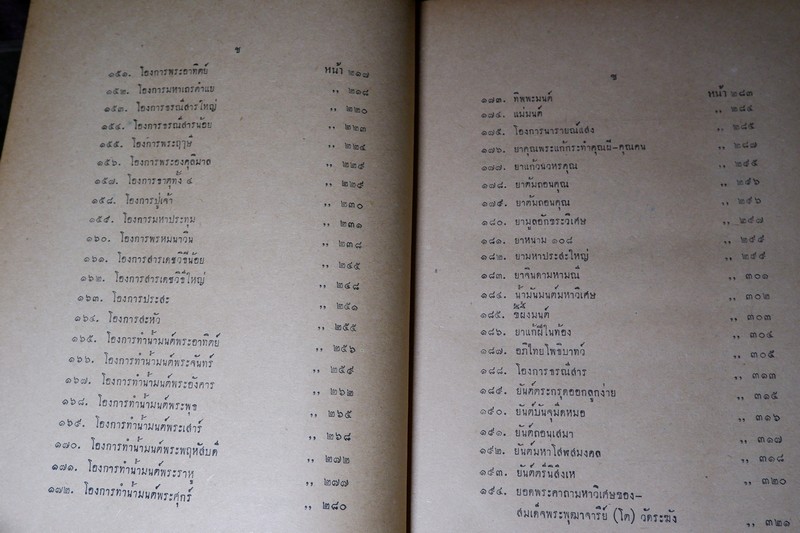 ช
๑๕๑. โองการพระอาทิตย์ หน้า ๒๑๗
๑๕๒. โองการมหาเถรตำแย ,, ๒๑๘
๑๕๓. โองการธรณีสารใหญ่ ,, ๒๒๐
๑๕๔. โองการธรณีสารน้อย ,, ๒๒๓
๑๕๕. โองการพระฤๅษี ,, ๒๒๕
๑๕๖. โองการพระองคุลิมาล
๑๕๗. โองการธาตุทั้ง ๔ ,, ๒๒๙
๑๕๘. โองการปู่เจ้า ,, ๒๓๐
๑๕๙. โองการมหาประทุม ,, ๒๓๑
๑๖๐. โองการพรหมนาวิน ,, ๒๓๘
๑๖๑. โองการสารเดชวิธีน้อย ,, ๒๔๕
๑๖๒. โองการสารเดชวิธีใหญ่ ,, ๒๔๘
๑๖๓. โองการประสะ ,, ๒๕๑
๑๖๔. โองการสะหัว ,, ๒๕๕
๑๖๕. โองการทำน้ำมนต์พระอาทิตย์ ,, ๒๕๖
๑๖๖. โองการทำน้ำมนต์พระจันทร์ ,, ๒๕๙
๑๖๗. โองการทำน้ำมนต์พระอังคาร ,, ๒๖๒
๑๖๘. โองการทำน้ำมนต์พระพุธ ,, ๒๖๕
๑๖๙. โองการทำน้ำมนต์พระเสาร์ ,, ๒๖๘
๑๗๐. โองการทำน้ำมนต์พระพฤหัสบดี ,, ๒๗๒
๑๗๑. โองการทำน้ำมนต์พระราหู ,, ๒๗๗
๑๗๒. โองการทำน้ำมนต์พระศุกร์ ,, ๒๘๐
ซ
๑๗๓. ทิพพะมนต์ หน้า ๒๘๓
๑๗๔. แม่มนต์ ,, ๒๘๔
๑๗๕. โองการนารายณ์แสง ,, ๒๘๕
๑๗๖. ยาคุณพระแก้กระทำคุณผี-คุณคน ,, ๒๘๗
๑๗๗. ยาแก้วนวหรคุณ ,, ๒๙๕
๑๗๘. ยาต้มถอนคุณ ,, ๒๙๖
๑๗๙. ยาต้มถอนคุณ ,, ๒๙๖
๑๘๐. ยามูลอักขระวิเศษ ,, ๒๙๗
๑๘๑. ยาหนาม ๑๐๘ ,, ๒๙๙
๑๘๒. ยามหาประสะใหญ่ ,, ๒๙๙
๑๘๓. ยาจินดามหามณี ,, ๓๐๑
๑๘๔. น้ำมันมนต์มหาวิเศษ ,, ๓๐๒
๑๘๕. ขี้ผึ้งมนต์ ,, ๓๐๓
๑๘๖. ยาแก้ผีในท้อง ,, ๓๐๔
๑๘๗. อภิไทยโพธิบาทว์ ,, ๓๐๕
๑๘๘. โองการธรณีสาร ,, ๓๑๓
๑๘๙. ยันต์ตระกรุดออกลูกง่าย ,, ๓๑๕
๑๙๐. ยันต์บันจุมืดหมอ ,, ๓๑๖
๑๙๑. ยันต์ถอนเสมา ,, ๓๑๗
๑๙๒. ยันต์มหาโสฬสมงคล ,, ๓๑๘
๑๙๓. ยันต์ตรีนิสิงเห ,, ๓๒๐
๑๙๔. ยอดพระคาถามหาวิเศษของ-
สมเด็จพระพุฒาจารีย์ (โต) วัดระฆัง ,, ๓๒๑